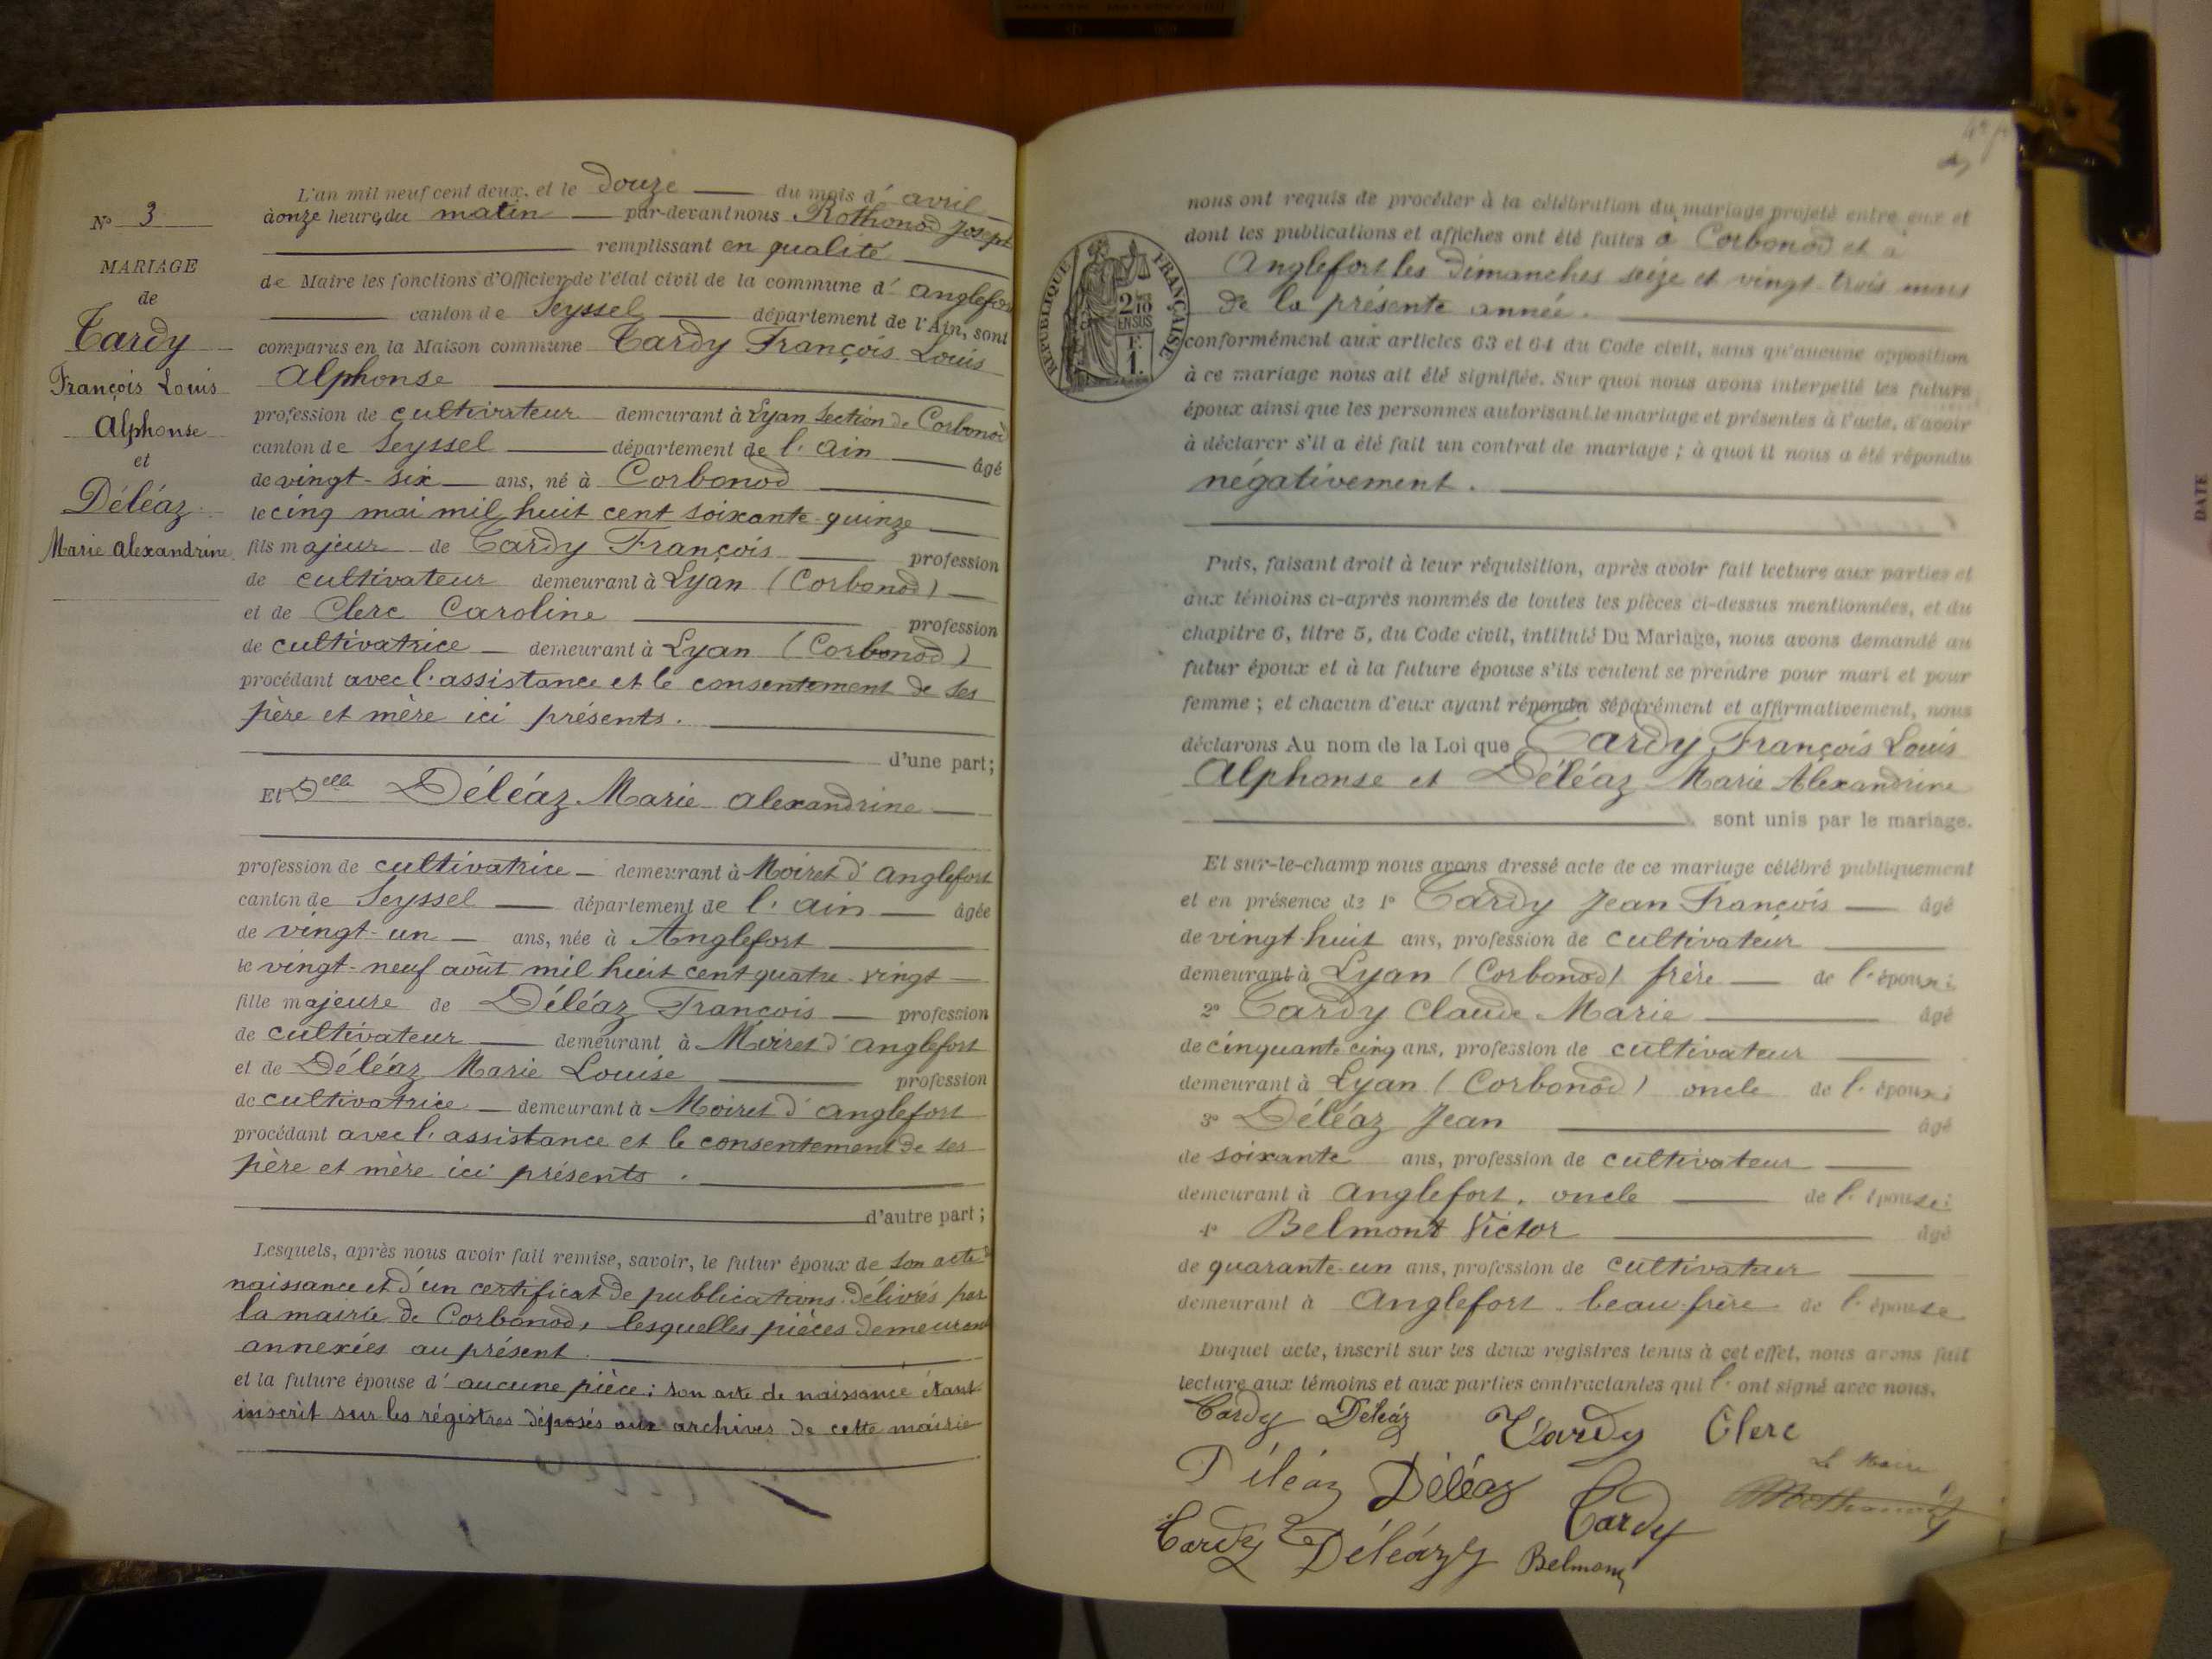 N° 3
MARIAGE
de
Tardy
François Louis
Alphonse
et
Déléaz
Marie Alexandrine
L'an mil neuf cent deux, et le douze du mois d' avril
à onze heures du matin par-devant nous Rothonod Joseph
remplissant en qualité
de Maire les fonctions d'Officier de l'état civil de la commune d' Anglefort
canton de Seyssel département de l'Ain, sont
comparus en la Maison commune Tardy François Louis
Alphonse
profession de cultivateur demeurant à Lyan section de Corbonod
canton de Seyssel département de l'Ain âgé
de vingt-six ans, né à Corbonod
le cinq mai mil huit cent soixante-quinze
fils majeur de Tardy François profession
de cultivateur demeurant à Lyan (Corbonod)
et de Clerc Caroline profession
de cultivatrice demeurant à Lyan (Corbonod)
procédant avec l'assistance et le consentement de ses
père et mère ici présents.
d'une part;
Et Delle Déléaz Marie Alexandrine
profession de cultivatrice demeurant à Moiret d'Anglefort
canton de Seyssel département de l'Ain âgée
de vingt-un ans, née à Anglefort
le vingt-neuf août mil huit cent quatre-vingt
fille majeure de Déléaz François profession
de cultivateur demeurant à Moiret d'Anglefort
et de Déléaz Marie Louise profession
de cultivatrice demeurant à Moiret d'Anglefort
procédant avec l'assistance et le consentement de ses
père et mère ici présents.
d'autre part;
Lesquels, après nous avoir fait remise, savoir, le futur époux de son acte de
naissance et d'un certificat de publications délivrés par
la mairie de Corbonod, lesquelles pièces demeurent
annexées au présent.
et la future épouse d' aucune pièce; son acte de naissance étant
inscrit sur les régistres déposés aux archives de cette mairie
RÉPUBLIQUE FRANÇAISE
2/10
EN SUS
F.
1.
nous ont requis de procéder à la célébration du mariage projeté entre eux et
dont les publications et affiches ont été faites à Corbonod et à
Anglefort les dimanches seize et vingt-trois mars
de la présente année.
conformément aux articles 63 et 64 du Code civil, sans qu'aucune opposition
à ce mariage nous ait été signifiée. Sur quoi nous avons interpellé les futurs
époux ainsi que les personnes autorisant le mariage et présentes à l'acte, d'avoir
à déclarer s'il a été fait un contrat de mariage; à quoi il nous a été répondu
négativement.
Puis, faisant droit à leur réquisition, après avoir fait lecture aux parties et
aux témoins ci-après nommés de toutes les pièces ci-dessus mentionnées, et du
chapitre 6, titre 5, du Code civil, intitulé Du Mariage, nous avons demandé au
futur époux et à la future épouse s'ils veulent se prendre pour mari et pour
femme; et chacun d'eux ayant répondu séparément et affirmativement, nous
déclarons Au nom de la Loi que Tardy François Louis
Alphonse et Déléaz Marie Alexandrine
sont unis par le mariage.
Et sur-le-champ nous avons dressé acte de ce mariage célébré publiquement
et en présence de 1° Tardy Jean François âgé
de vingt-huit ans, profession de cultivateur
demeurant à Lyan (Corbonod) frère de l'époux;
2° Tardy Claude Marie âgé
de cinquante-cinq ans, profession de cultivateur
demeurant à Lyan (Corbonod) oncle de l'époux;
3° Déléaz Jean âgé
de soixante ans, profession de cultivateur
demeurant à Anglefort, oncle de l'épouse;
4° Belmont Victor âgé
de quarante-un ans, profession de cultivateur
demeurant à Anglefort. beau-frère de l'épouse
Duquel acte, inscrit sur les deux registres tenus à cet effet, nous avons fait
lecture aux témoins et aux parties contractantes qui l'ont signé avec nous.
Tardy Déléaz Tardy Clerc
Déléaz Déléaz Tardy Le Maire
Rothonod
Tardy Déléaz Belmont
DATE